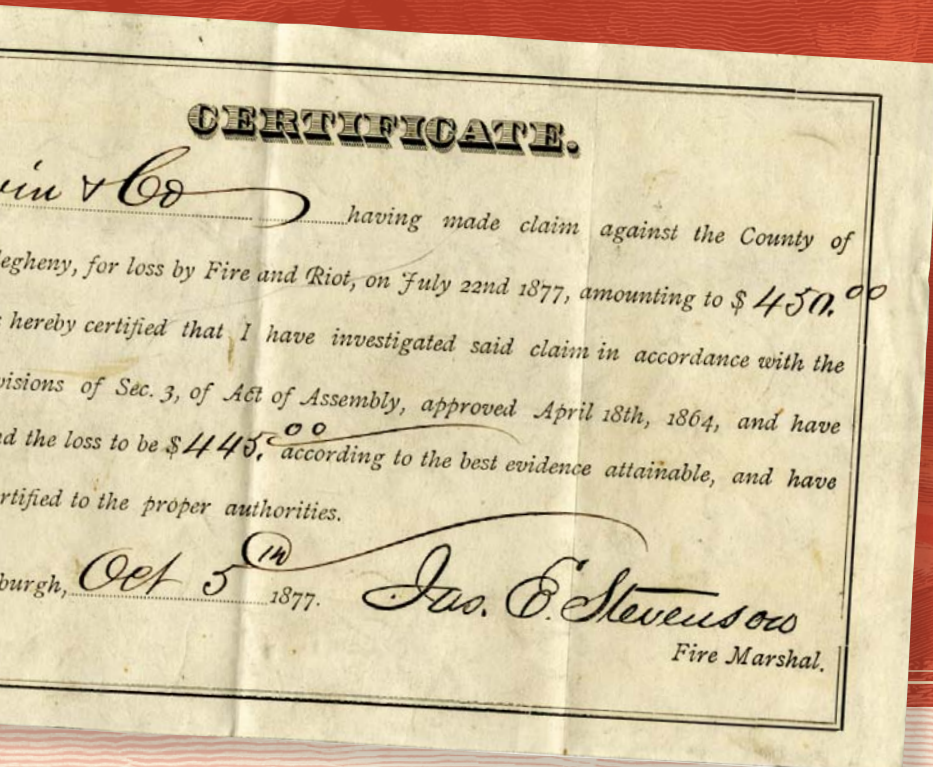 CERTIFICATE.
vin & Co having made claim against the County of
legheny, for loss by Fire and Riot, on July 22nd 1877, amounting to $ 450.00
hereby certified that I have investigated said claim in accordance with the
visions of Sec. 3, of Act of Assembly, approved April 18th, 1864, and have
d the loss to be $ 445.00 according to the best evidence attainable, and have
rtified to the proper authorities.
burgh, Oct 5th 1877. Jas. E. Stevenson
Fire Marshal.